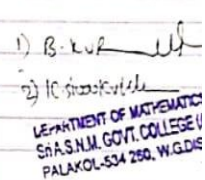 1) B.
2) K.
DEPARTMENT OF MATHEMATICS
Sri A.S.N.M. GOVT. COLLEGE (
PALAKOL-534 260, W.G.DIS